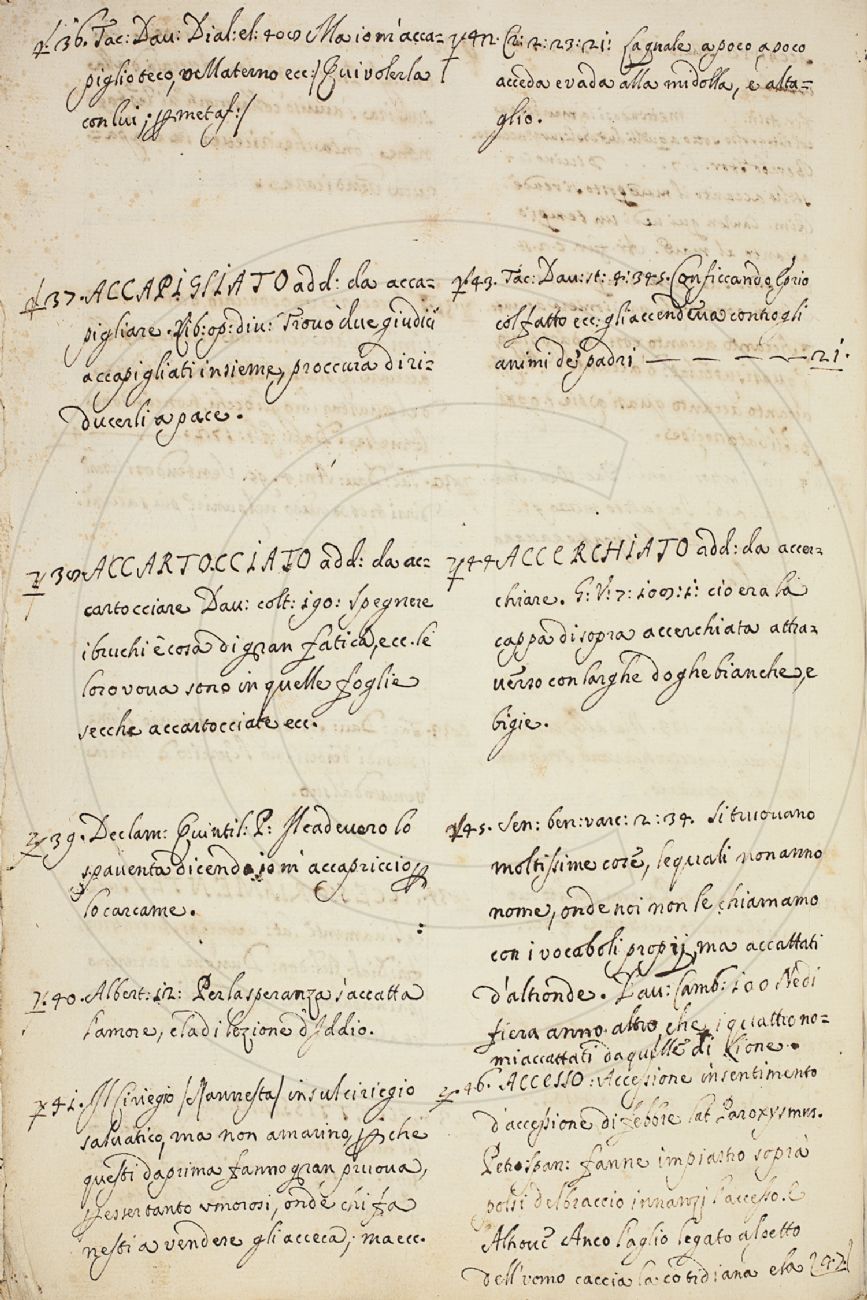 36. Tac: Dau: Dial: el: 408 Ma io m'acca=
piglio teco, o Materno ecc:/ Qui volerla
con lui, p metaf:/
37. ACCAPIGLIATO add: da acca=
pigliare. Lib: op: diu: Trovò due giudici
accapigliati insieme, proccurà di ri=
ducerli a pace.
38 ACCARTOCCIATO add: da ac=
cartocciare Dau: colt: 190: spegnere
i bruchi è cosa di gran fatica, ecc. le
loro vova sono in quelle foglie
secche accartocciate ecc.
39. Declam: Quintil: P: Il cadevero lo
spaventa dicendo io m'accapriccio p
lo carcame.
40. Albert: 12: Per la speranza s'accatta
l'amore, e la dilezione d'Iddio.
41. Il Ciriegio /s'annesta/ in sul ciriegio
salvatico, ma non amarino, p che
questi da prima fanno gran pruova,
p esser tanto vmorosi, onde chi fa
nesti a vendere gli acceca; ma ecc.
42. Cr: 2: 23: 21: La quale a poco a poco
acceda e vada alla midolla, e al ta=
glio.
43. Tac: Dau: st: 4: 345. Conficcando Eprio
col fatto ecc: gli accendeva contro gli
animi de' padri — — — — — 21.
44 ACCERCHIATO add: da accer=
chiare. G: V: 7: 108: 1: cio era la
cappa di sopra accerchiata attra=
verso con larghe doghe bianche, e
bigie.
45. Sen: ben: varc: 2: 34. Si truovano
moltissime cose, le quali non anno
nome, onde noi non le chiamamo
con i vocaboli proprij, ma accattati
d'altronde. Dau: Camb: 100 Nè di
fiera anno altro, che i quattro no=
mi accattati da quelle di Lione.
46. ACCESSO: Accessione in sentimento
d'accessione di febbre lat Paroxysmus.
Pet: Span: fanne impiastro sopra
polsi del braccio innanzi l'accesso. E
Anco l'aglio legato al petto
dell'vomo caccia la cotidiana e la 47